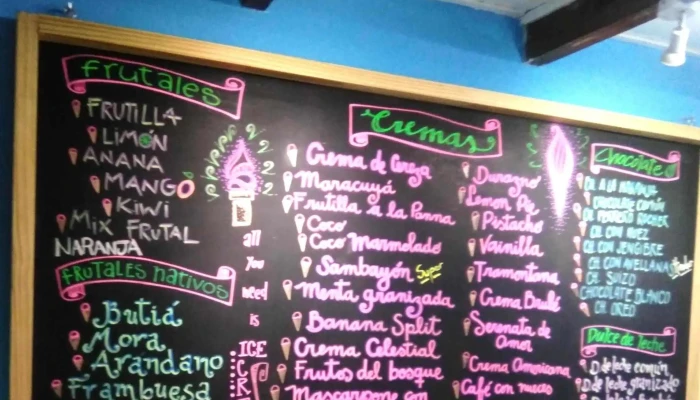 Frutales
FRUTILLA
LIMÓN
ANANA
MANGO
KIWI
MIX FRUTAL
NARANJA
FRUTALES NATIVOS
Butiá
Mora
Arandano
Frambuesa
all
You
need
is
ICE
C
R
Cremas
Crema de Cereza
Maracuyá
Frutilla a la Panna
Coco
Coco Marmolado
Sambayón Super
Menta granizada
Banana Split
Crema Celestial
Frutos del bosque
Mascarpone con
Durazno
Lemon Pie
Pistacho
Vainilla
Tramontana
Crema Brulé
Serenata de
Amor
Crema Americana
Café con nueces
Chocolate
CH. A LA NARANJA
CHOCOLATE COMÚN
CH. FERRERO ROCHER
CH. CON NUEZ
CH. CON JENGIBRE
CH. CON AVELLANA
CH. SUIZO
CHOCOLATE BLANCO
CH. OREO
Dulce de leche
D de leche común
D de leche granizado